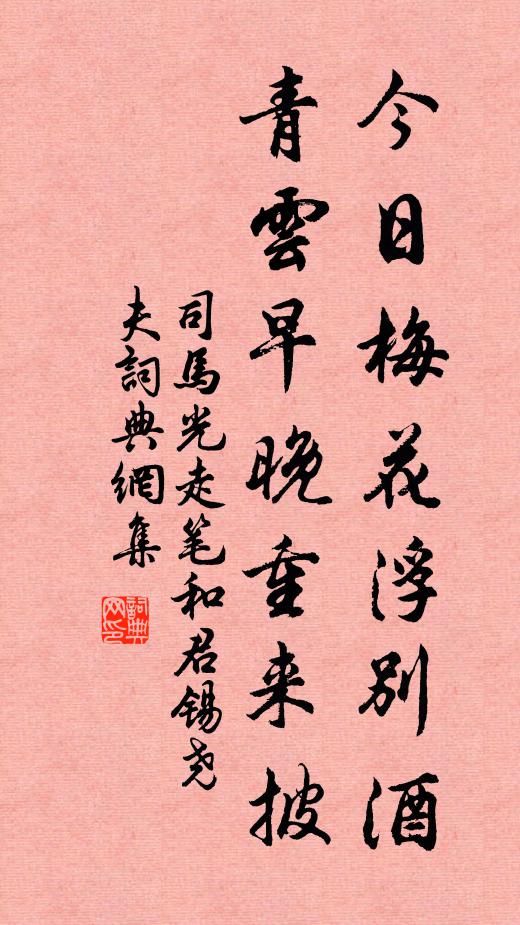 今日梅花浮別酒
青雲早晚重来披
司馬光走笔和君锡尧
夫詞典網集
詞典
网印